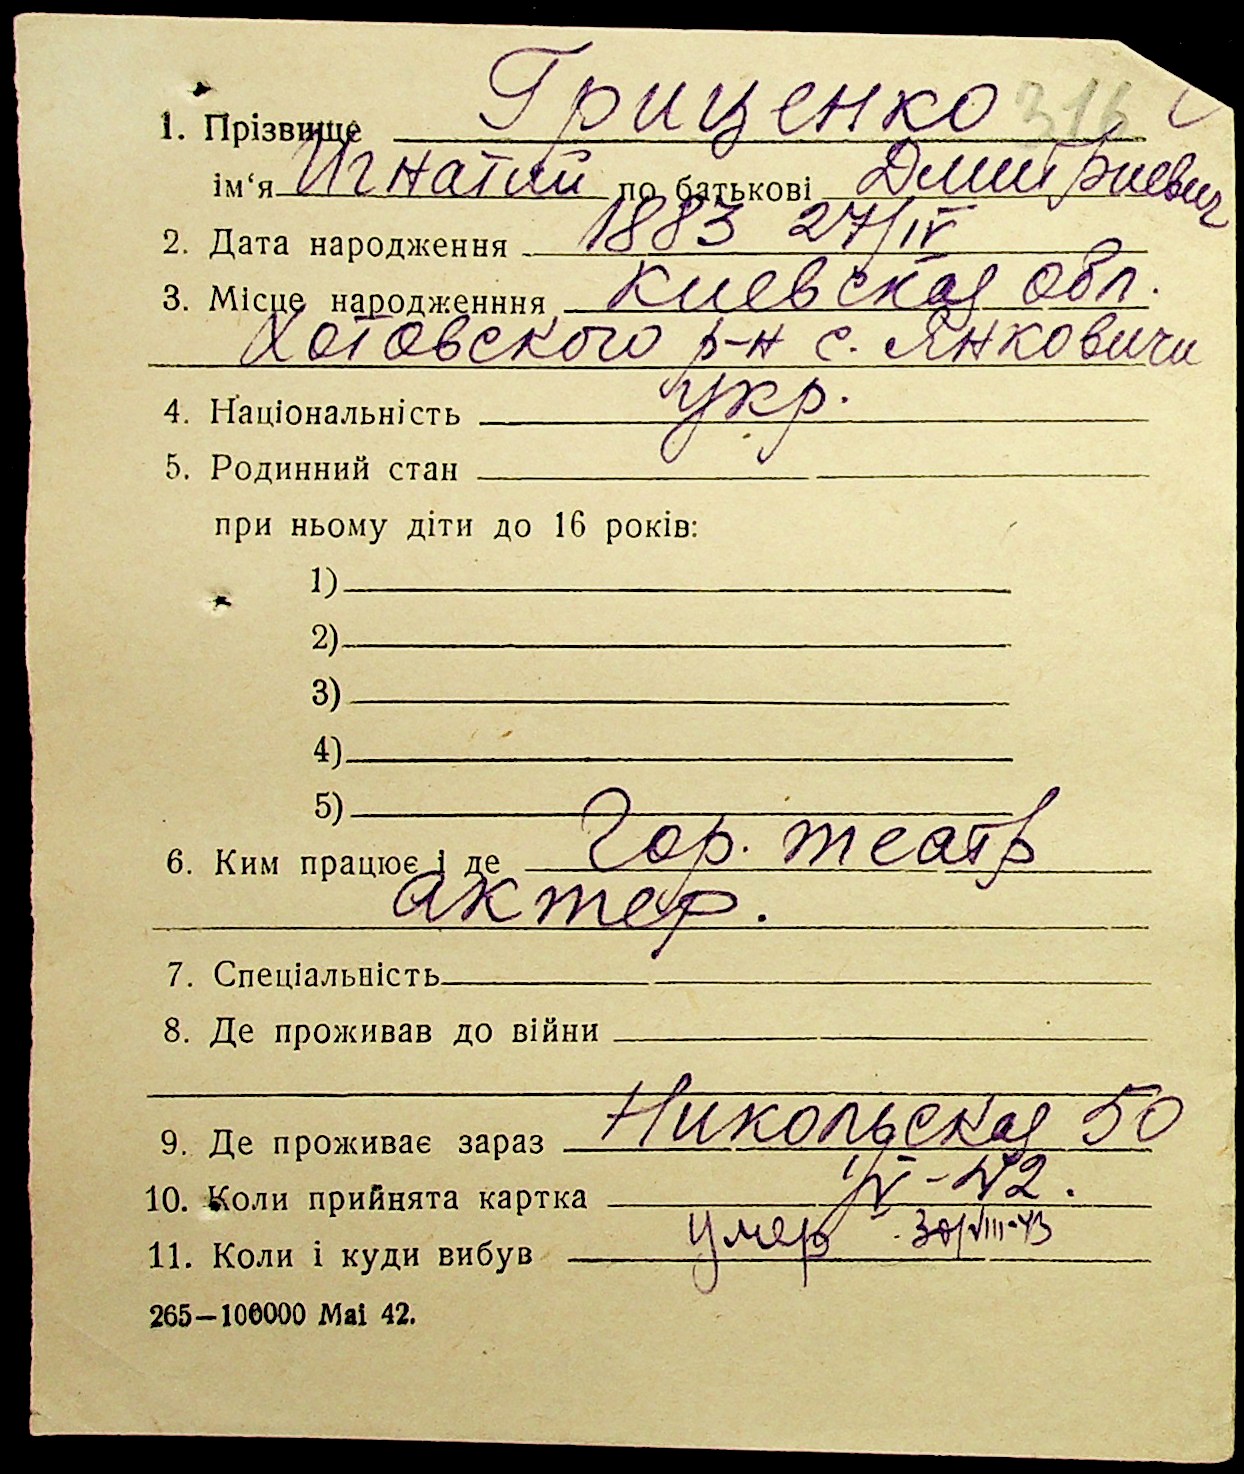 316
1. Прізвище Гриценко
ім‘я Игнатий по батькові Дмитриевич
2. Дата народження 1883 27/IV
3. Місце народженння Киевская обл.
Хотовского р-н с. Янковичи
4. Національність укр.
5. Родинний стан
при ньому діти до 16 років:
1)
2)
3)
4)
5)
6. Ким працює і де Гор. театр
актер.
7. Спеціальність
8. Де проживав до війни
9. Де проживає зараз Никольская 50
10. Коли прийнята картка IV-42.
11. Коли і куди вибув умер 30/VIII-43
265—100000 Mai 42.